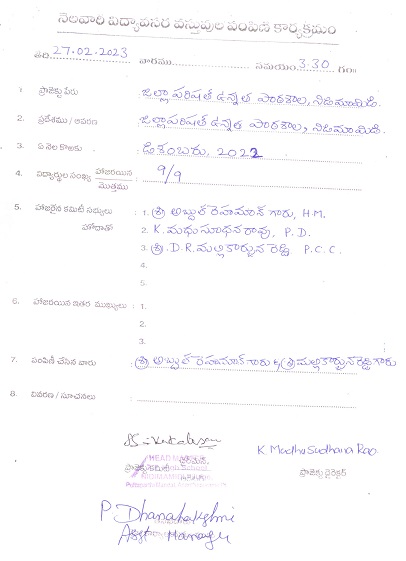 నెలవారి విద్యావసర వస్తువుల పంపిణి కార్యక్రమం
తేది 27.02.2023 వారము సమయం 3.30 గం॥
1. ప్రాజెక్టు పేరు జిల్లా పరిషత్ ఉన్నత పాఠశాల, నిడిమామిడి.
2. ప్రదేశము / ఆవరణ జిల్లాపరిషత్ ఉన్నత పాఠశాల, నిడిమామిడి
3. ఏ నెల కొఱకు డిశంబరు, 2022
4. విద్యార్థుల సంఖ్య హాజరయిన / మొత్తము 9/9
5. హాజరైన కమిటీ సభ్యులు : 1. శ్రీ అబ్దుల్ రెహమాన్ గారు, H.M.
హోదాతో 2. K. మధుసూధనరావు, P.D.
3. శ్రీ .D.R. మల్లికార్జున రెడ్డి P.C.C.
4.
5.
6. హాజరయిన ఇతర ముఖ్యులు : 1.
2.
3.
7. పంపిణీ చేసిన వారు : శ్రీ అబ్దుల్ రెహమాన్ గారు & శ్రీ మల్లికార్జునరెడ్డి గారు
8. వివరణ / సూచనలు :
K Madhu Sudhana Rao
HEAD MASTER
ఛైర్మెన్,
ప్రాజెక్టు కమిటీ
ప్రాజెక్టు డైరెక్టర్
P. Dhanalakshmi
Asst Manager